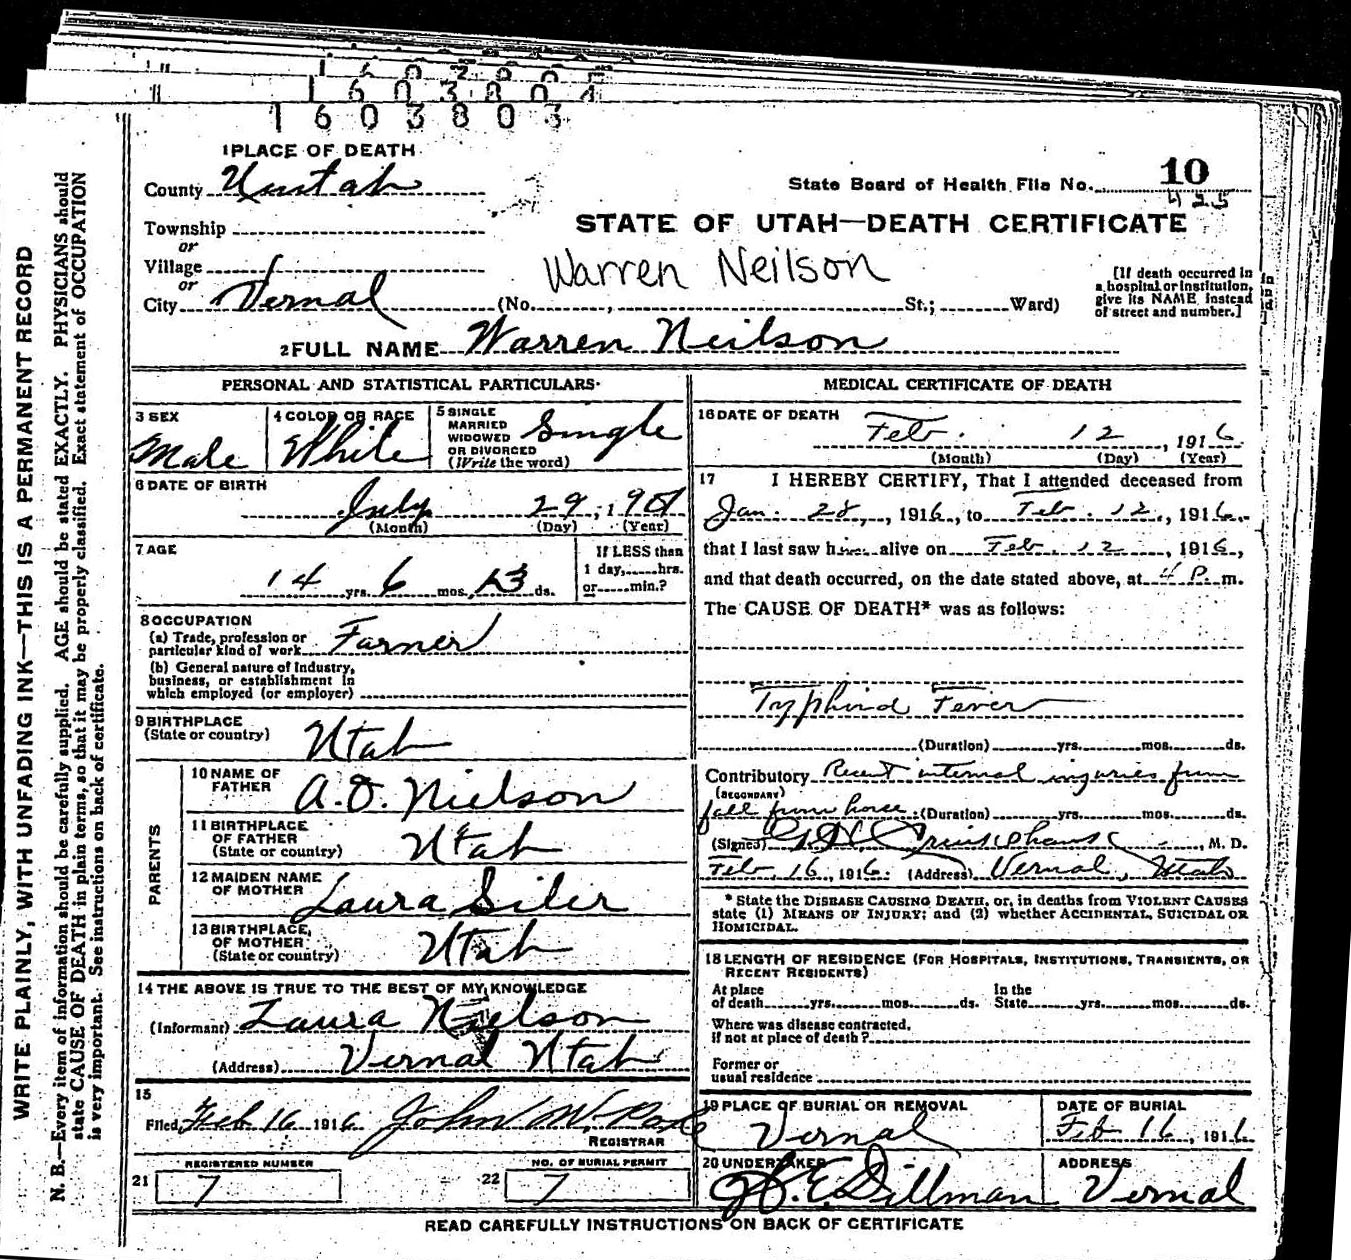 1603804
1603803
1 PLACE OF DEATH
County Uintah
State Board of Health File No. 10
425
STATE OF UTAH—DEATH CERTIFICATE
Township
or
Village
or
City Vernal (No. , St.; Ward)
Warren Neilson
[If death occurred in a hospital or institution, give its NAME instead of street and number.]
2 FULL NAME Warren Neilson
PERSONAL AND STATISTICAL PARTICULARS
3 SEX Male
4 COLOR OR RACE White
5 SINGLE MARRIED WIDOWED OR DIVORCED (Write the word) Single
6 DATE OF BIRTH
July 29, 1901
(Month) (Day) (Year)
7 AGE
14 yrs. 6 mos. 13 ds.
If LESS than 1 day, hrs. or min.?
8 OCCUPATION
(a) Trade, profession or particular kind of work Farmer
(b) General nature of Industry, business, or establishment in which employed (or employer)
9 BIRTHPLACE
(State or country) Utah
PARENTS
10 NAME OF FATHER A.O. Nielson
11 BIRTHPLACE OF FATHER (State or country) Utah
12 MAIDEN NAME OF MOTHER Laura Siler
13 BIRTHPLACE OF MOTHER (State or country) Utah
14 THE ABOVE IS TRUE TO THE BEST OF MY KNOWLEDGE
(Informant) Laura Nielson
(Address) Vernal Utah
15
Filed, Feb 16 1916 John W.
REGISTRAR
REGISTERED NUMBER
21 7
NO. OF BURIAL PERMIT
22 7
MEDICAL CERTIFICATE OF DEATH
16 DATE OF DEATH
Feb. 12, 1916
(Month) (Day) (Year)
17 I HEREBY CERTIFY, That I attended deceased from
Jan. 28, 1916, to Feb. 12, 1916
that I last saw him alive on Feb. 12, 1916,
and that death occurred, on the date stated above, at 4 P. m.
The CAUSE OF DEATH* was as follows:
Typhiod Fever
(Duration) yrs. mos. ds.
Contributory Recent internal injuries from
(SECONDARY)
fall from horse (Duration) yrs. mos. ds.
(Signed) , M. D.
Feb. 16, 1916. (Address) Vernal, Utah
* State the DISEASE CAUSING DEATH, or, in deaths from VIOLENT CAUSES
state (1) MEANS OF INJURY; and (2) whether ACCIDENTAL, SUICIDAL OR
HOMICIDAL.
18 LENGTH OF RESIDENCE (FOR HOSPITALS, INSTITUTIONS, TRANSIENTS, OR
RECENT RESIDENTS)
At place of death yrs. mos. ds. In the State yrs. mos. ds.
Where was disease contracted,
if not at place of death?
Former or
usual residence
19 PLACE OF BURIAL OR REMOVAL
Vernal
DATE OF BURIAL
Feb 16, 1916
20 UNDERTAKER
Dillman
ADDRESS
Vernal
READ CAREFULLY INSTRUCTIONS ON BACK OF CERTIFICATE
WRITE PLAINLY, WITH UNFADING INK—THIS IS A PERMANENT RECORD
N. B.—Every item of information should be carefully supplied. AGE should be stated EXACTLY. PHYSICIANS should
state CAUSE OF DEATH in plain terms, so that it may be properly classified. Exact statement of OCCUPATION
is very important. See instructions on back of certificate.